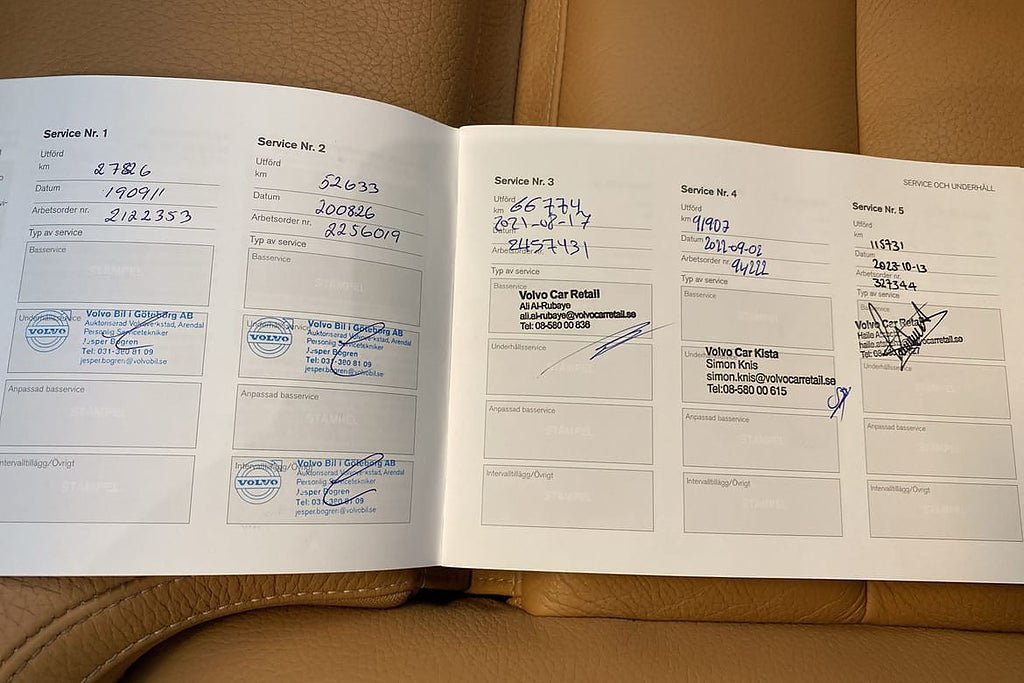 Service Nr. 1
Utförd
km 27826
Datum 190911
Arbetsorder nr. 2122353
Typ av service
Basservice
STÄMPEL
Underhållsservice
VOLVO
Volvo Bil i Göteborg AB
Auktoriserad Volvoverkstad, Arendal
Personlig Servicetekniker
Jesper Bogren
Tel: 031-380 81 09
jesper.bogren@volvobil.se
Anpassad basservice
STÄMPEL
Intervalltillägg/Övrigt
STÄMPEL
Service Nr. 2
Utförd
km 52633
Datum 200826
Arbetsorder nr. 2256019
Typ av service
Basservice
STÄMPEL
Underhållsservice
VOLVO
Volvo Bil i Göteborg AB
Auktoriserad Volvoverkstad, Arendal
Personlig Servicetekniker
Jesper Bogren
Tel: 031-380 81 09
jesper.bogren@volvobil.se
Anpassad basservice
STÄMPEL
Intervalltillägg/Övrigt
VOLVO
Volvo Bil i Göteborg AB
Auktoriserad Volvoverkstad, Arendal
Personlig Servicetekniker
Jesper Bogren
Tel: 031-380 81 09
jesper.bogren@volvobil.se
SERVICE OCH UNDERHÅLL
Service Nr. 3
Utförd
km 66774
Datum 2021-08-17
Arbetsorder nr. 2457431
Typ av service
Basservice
Volvo Car Retail
Ali Al-Rubaye
ali.al-rubaye@volvocarretail.se
Tel: 08-580 00 838
Underhållsservice
STÄMPEL
Anpassad basservice
STÄMPEL
Intervalltillägg/Övrigt
STÄMPEL
Service Nr. 4
Utförd
km 91907
Datum 2022-09-02
Arbetsorder nr. 94222
Typ av service
Basservice
STÄMPEL
Underhållsservice
Volvo Car Kista
Simon Knis
simon.knis@volvocarretail.se
Tel:08-580 00 615
Anpassad basservice
STÄMPEL
Intervalltillägg/Övrigt
STÄMPEL
Service Nr. 5
Utförd
km 115731
Datum 2023-10-13
Arbetsorder nr. 327344
Typ av service
Volvo Car Retail
Underhållsservice
STÄMPEL
Anpassad basservice
STÄMPEL
Intervalltillägg/Övrigt
STÄMPEL